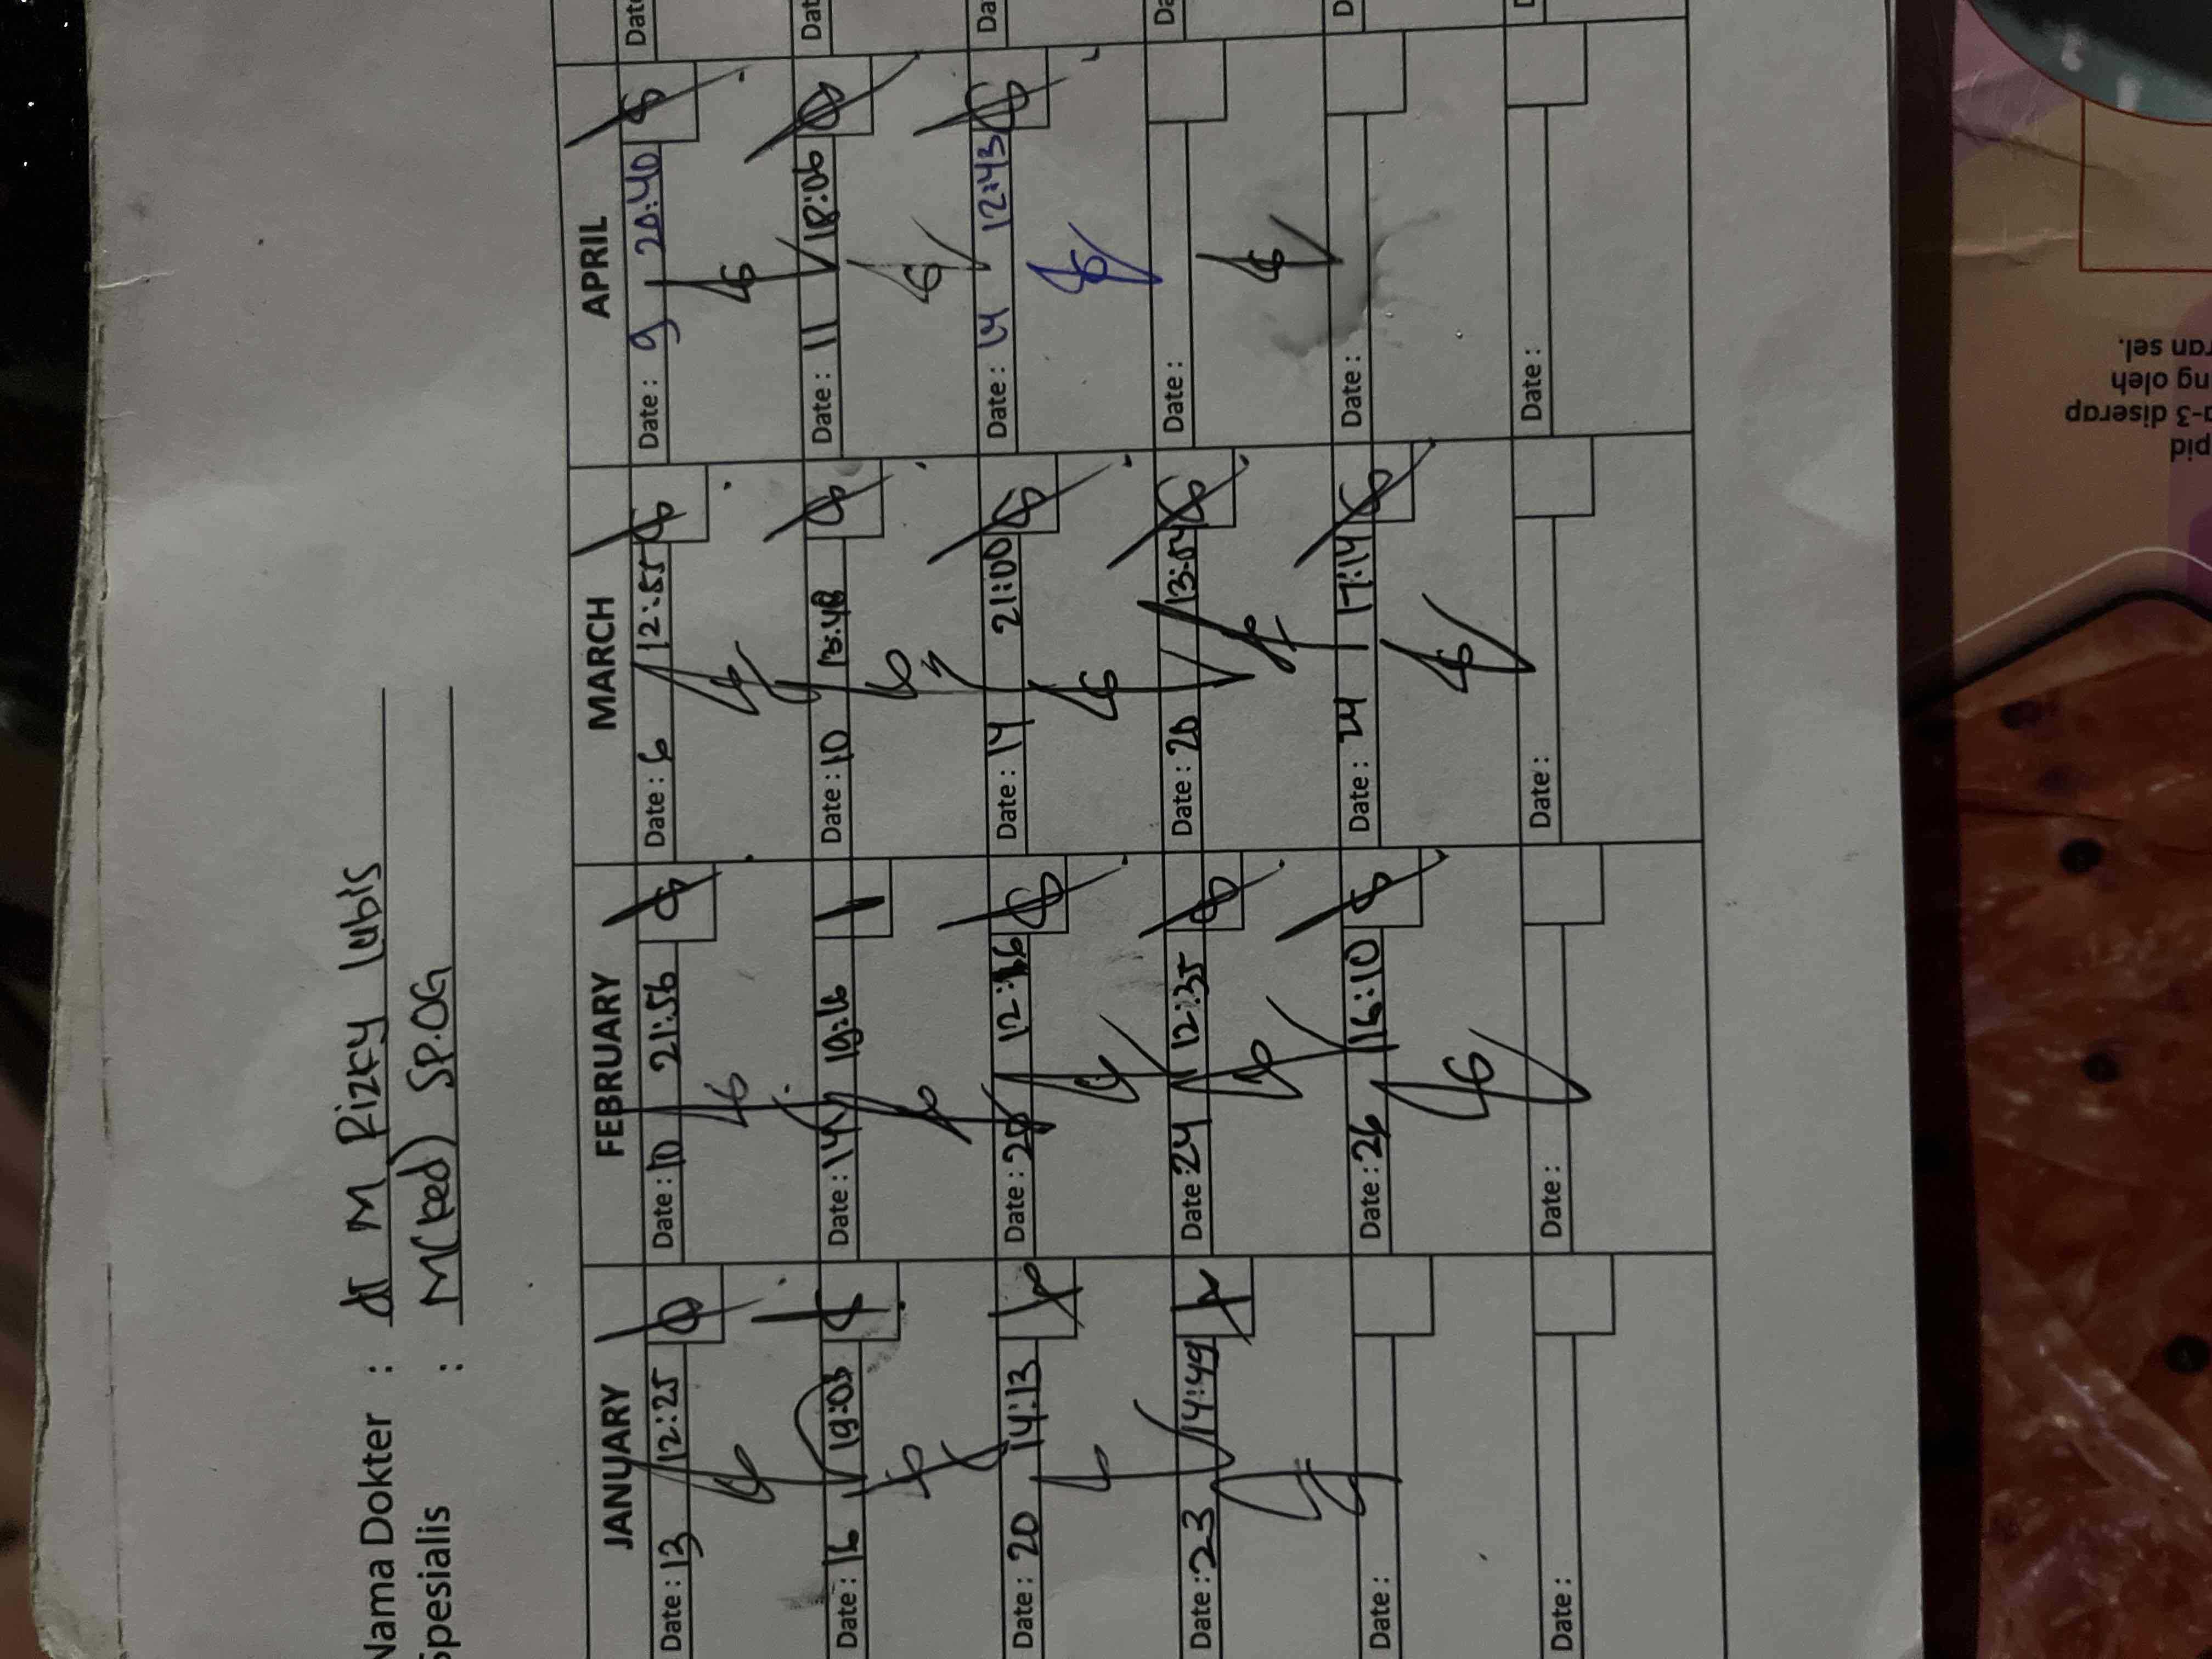 Nama Dokter : dr M Rizky lubis
Spesialis : M(ked) SP.OG
JANUARY FEBRUARY MARCH APRIL
Date : 13 12:25 Date : 10 21:56 Date : 6 12:55 Date : 9 20:40 Date
Date : 16 19:03 Date : 14 19:16 Date : 10 13:48 Date : 11 18:06 Dat
Date : 20 14:13 Date : 12:16 Date : 14 21:00 Date : 14 12:43 Da
Date : 23 14:49 Date : 24 12:35 Date : 20 13:54 Date : Da
Date : Date : 26 16:10 Date : 24 17:14 Date : D
Date : Date : Date : Date : D
pid
a-3 diserap
ng oleh
ran sel.